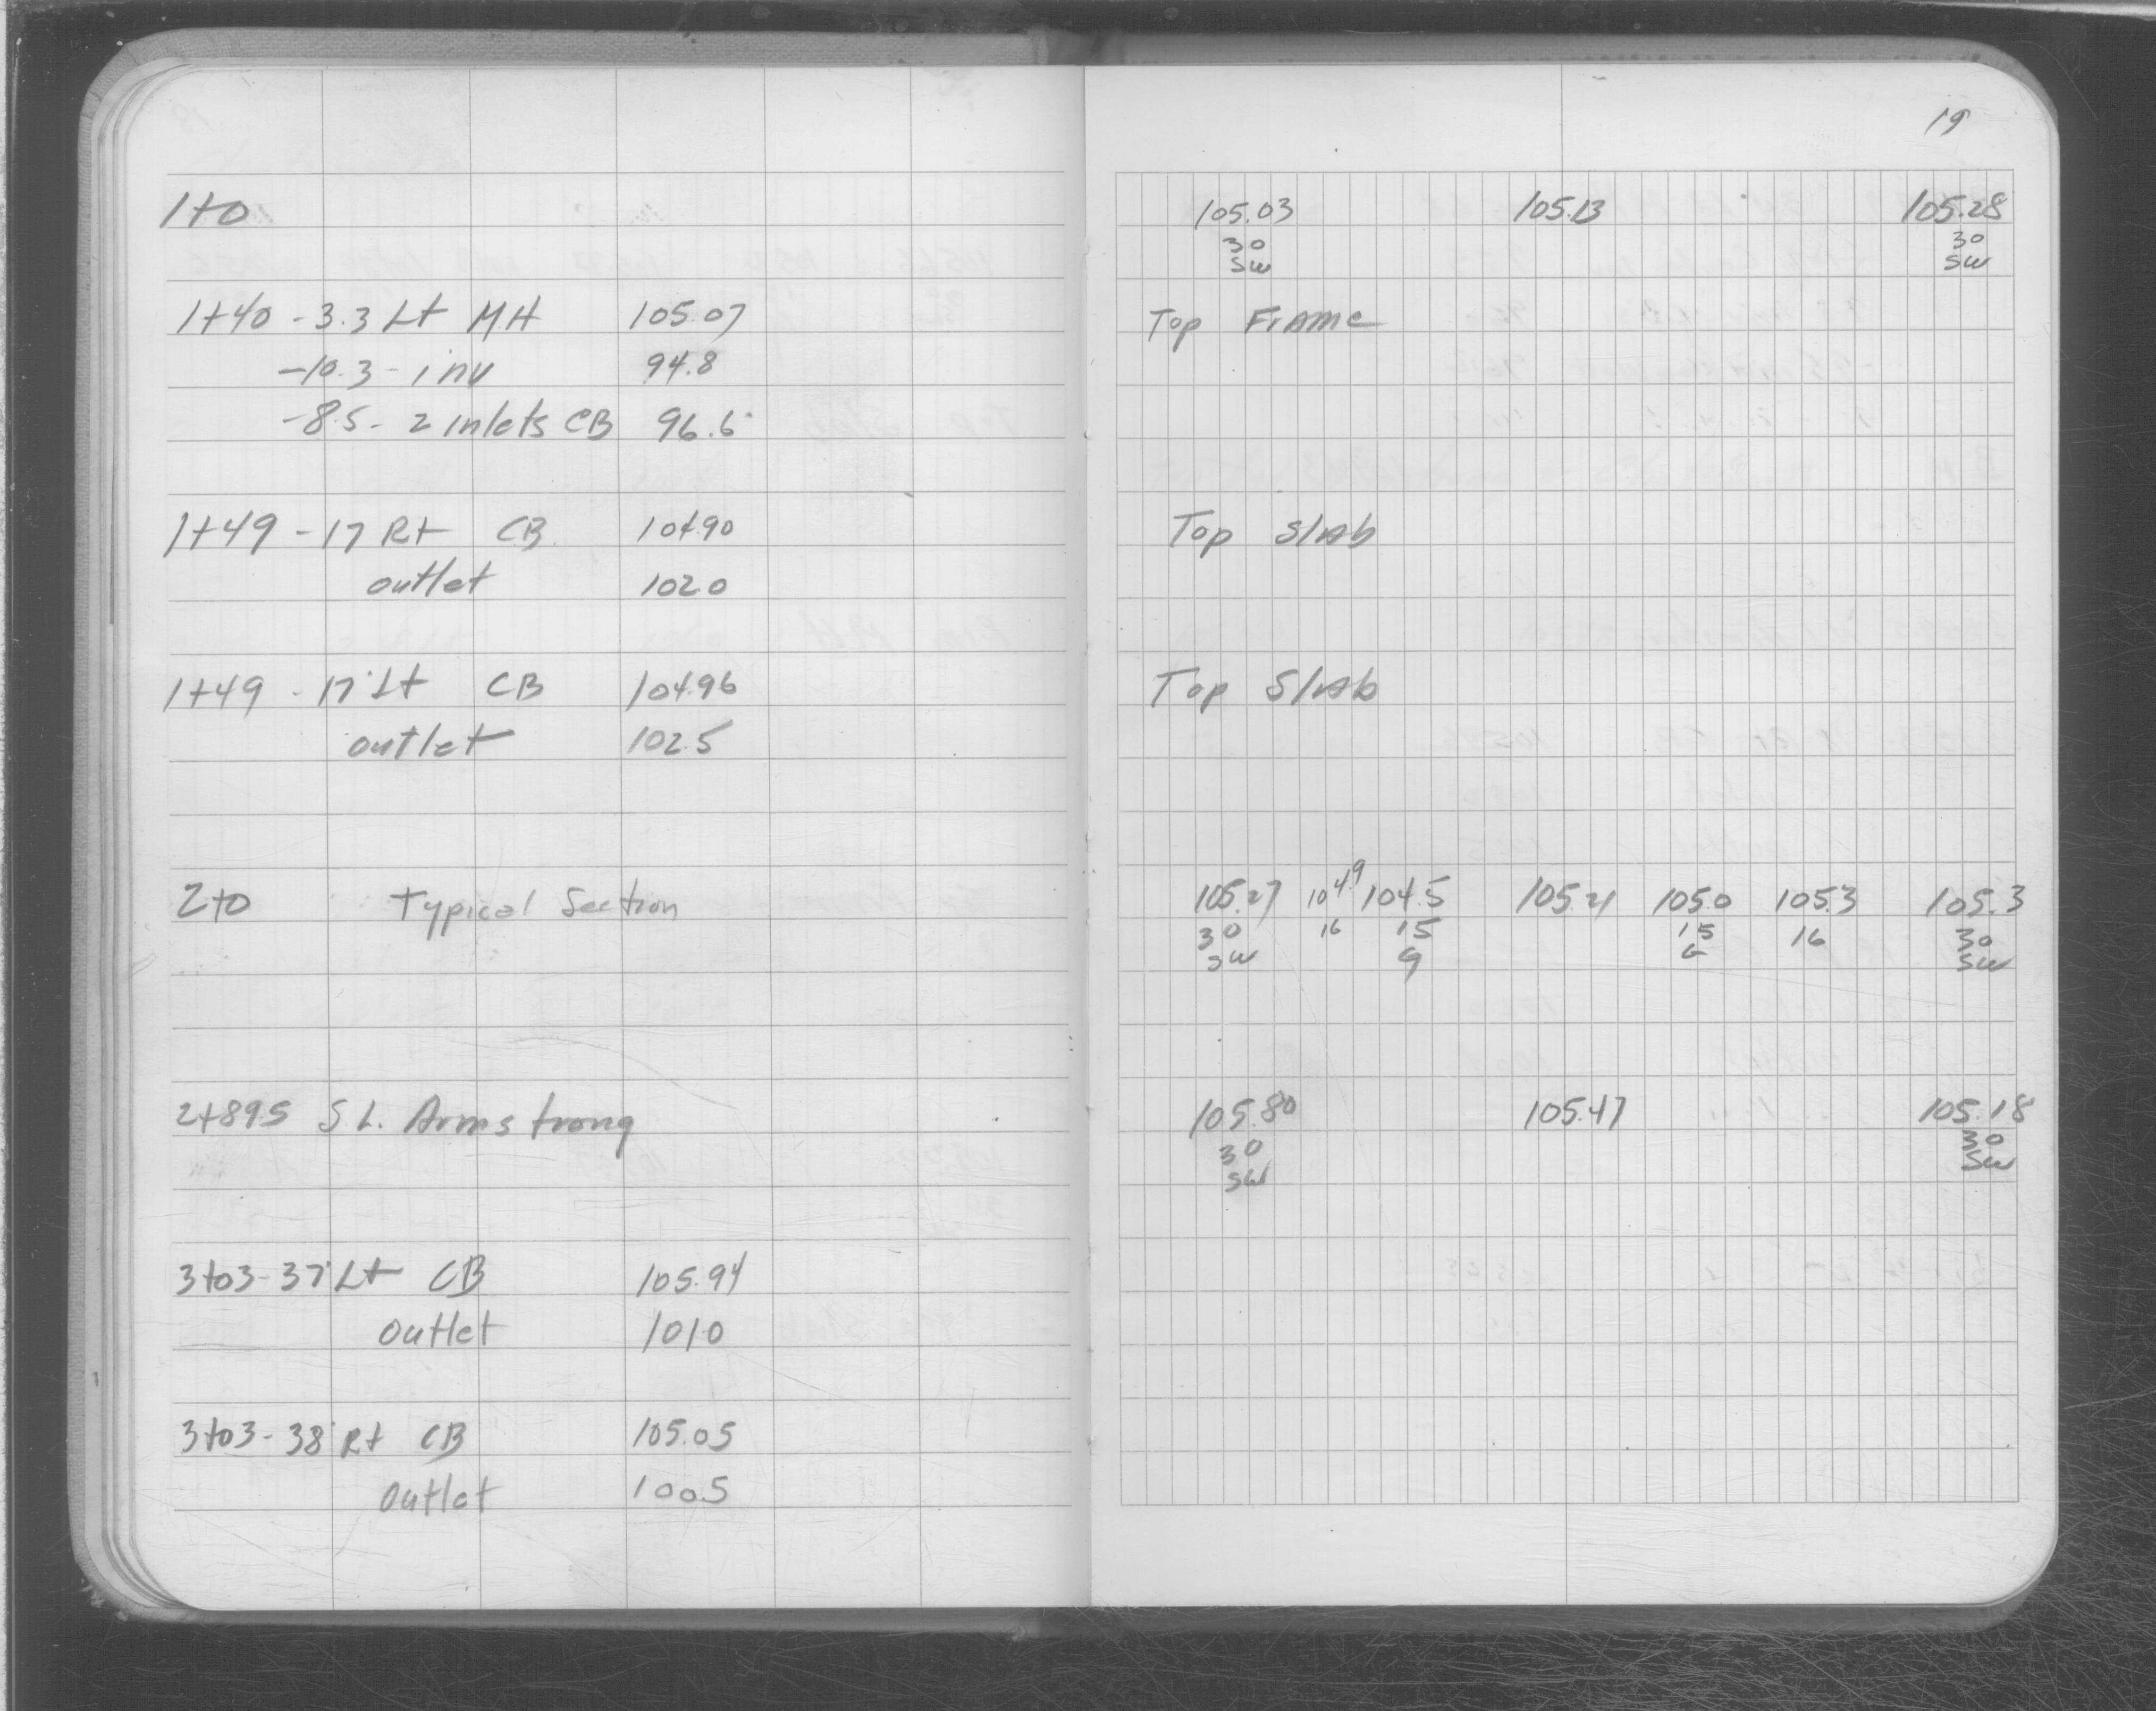 19
1+0 105.03 105.13 105.28
30 30
SW SW
1+40 - 3.3 Lt MH 105.07 Top Frame
-10.3 - inv 94.8
-8.5 - 2 inlets CB 96.6
1+49 - 17 Rt CB 104.90 Top Slab
outlet 102.0
1+49 - 17' Lt CB 104.96 Top Slab
outlet 102.5
2+0 Typical Section 105.27 104.9 104.5 105.21 105.0 105.3 105.3
30 16 15 15 16 30
SW G G SW
2+89.5 S L. Armstrong 105.80 105.47 105.18
30 30
SW SW
3+03 - 37' Lt CB 105.94
outlet 101.0
3+03 - 38' Rt CB 105.05
outlet 100.5